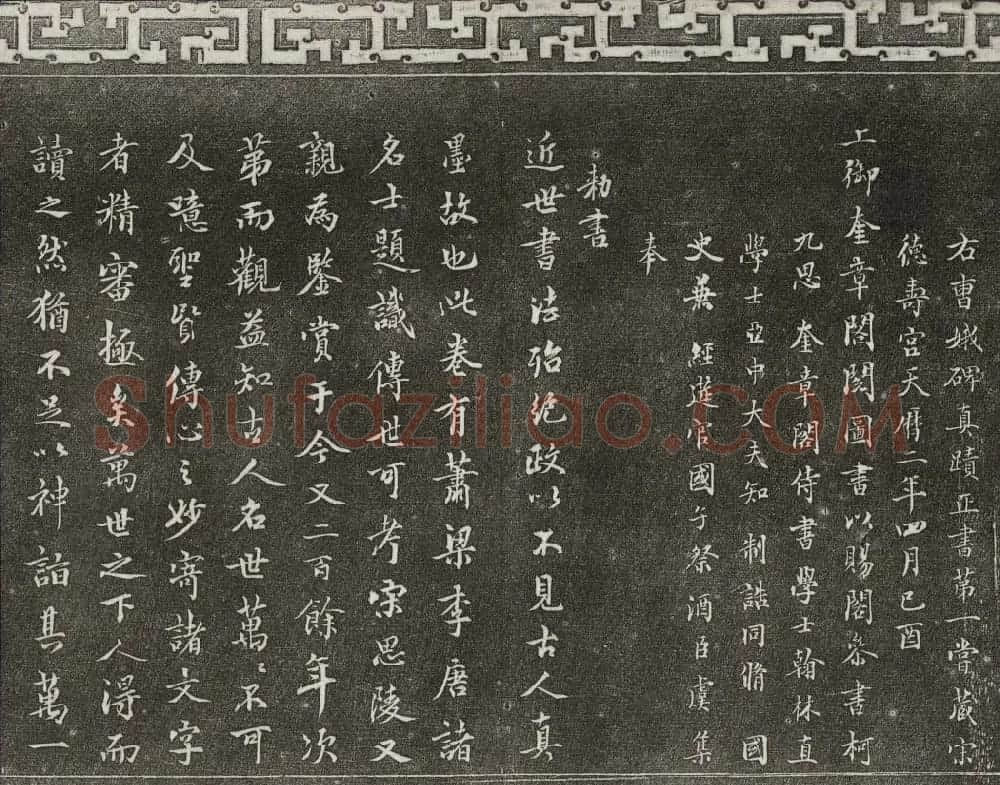 右曹娥碑真蹟正書第一嘗藏宋
德壽宮天曆二年四月己酉
上御奎章閣閱圖書以賜閣參書柯
九思奎章閣侍書學士翰林直
學士亞中大夫知制誥同脩國
史兼經筵官國子祭酒臣虞集
奉
勑書
近世書法殆絕政以不見古人真
墨故也此卷有蕭梁李唐諸
名士題識傳世可考宋思陵又
親為鑒賞于今又二百餘年次
第而觀益知古人名世萬萬不可
及噫聖賢傳心之妙寄諸文字
者精審極矣萬世之下人得而
讀之然猶不足以神詣其萬一
Shufaziliao.com